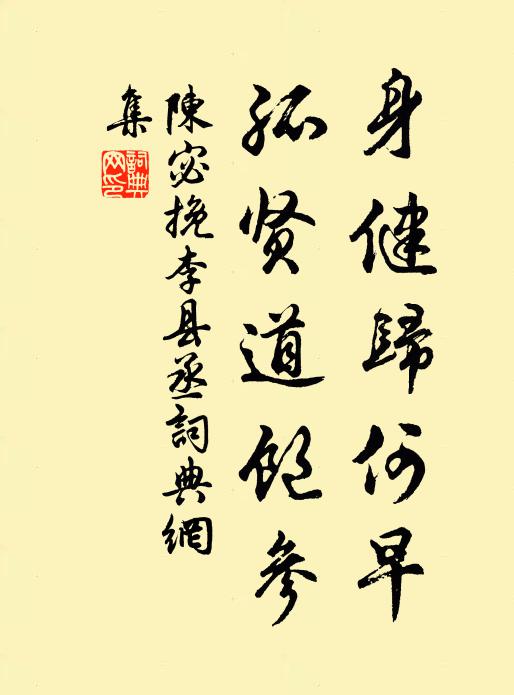 身健歸何早
孤贤道飽參
陳宓挽李县丞詞典網
集
詞典
网印